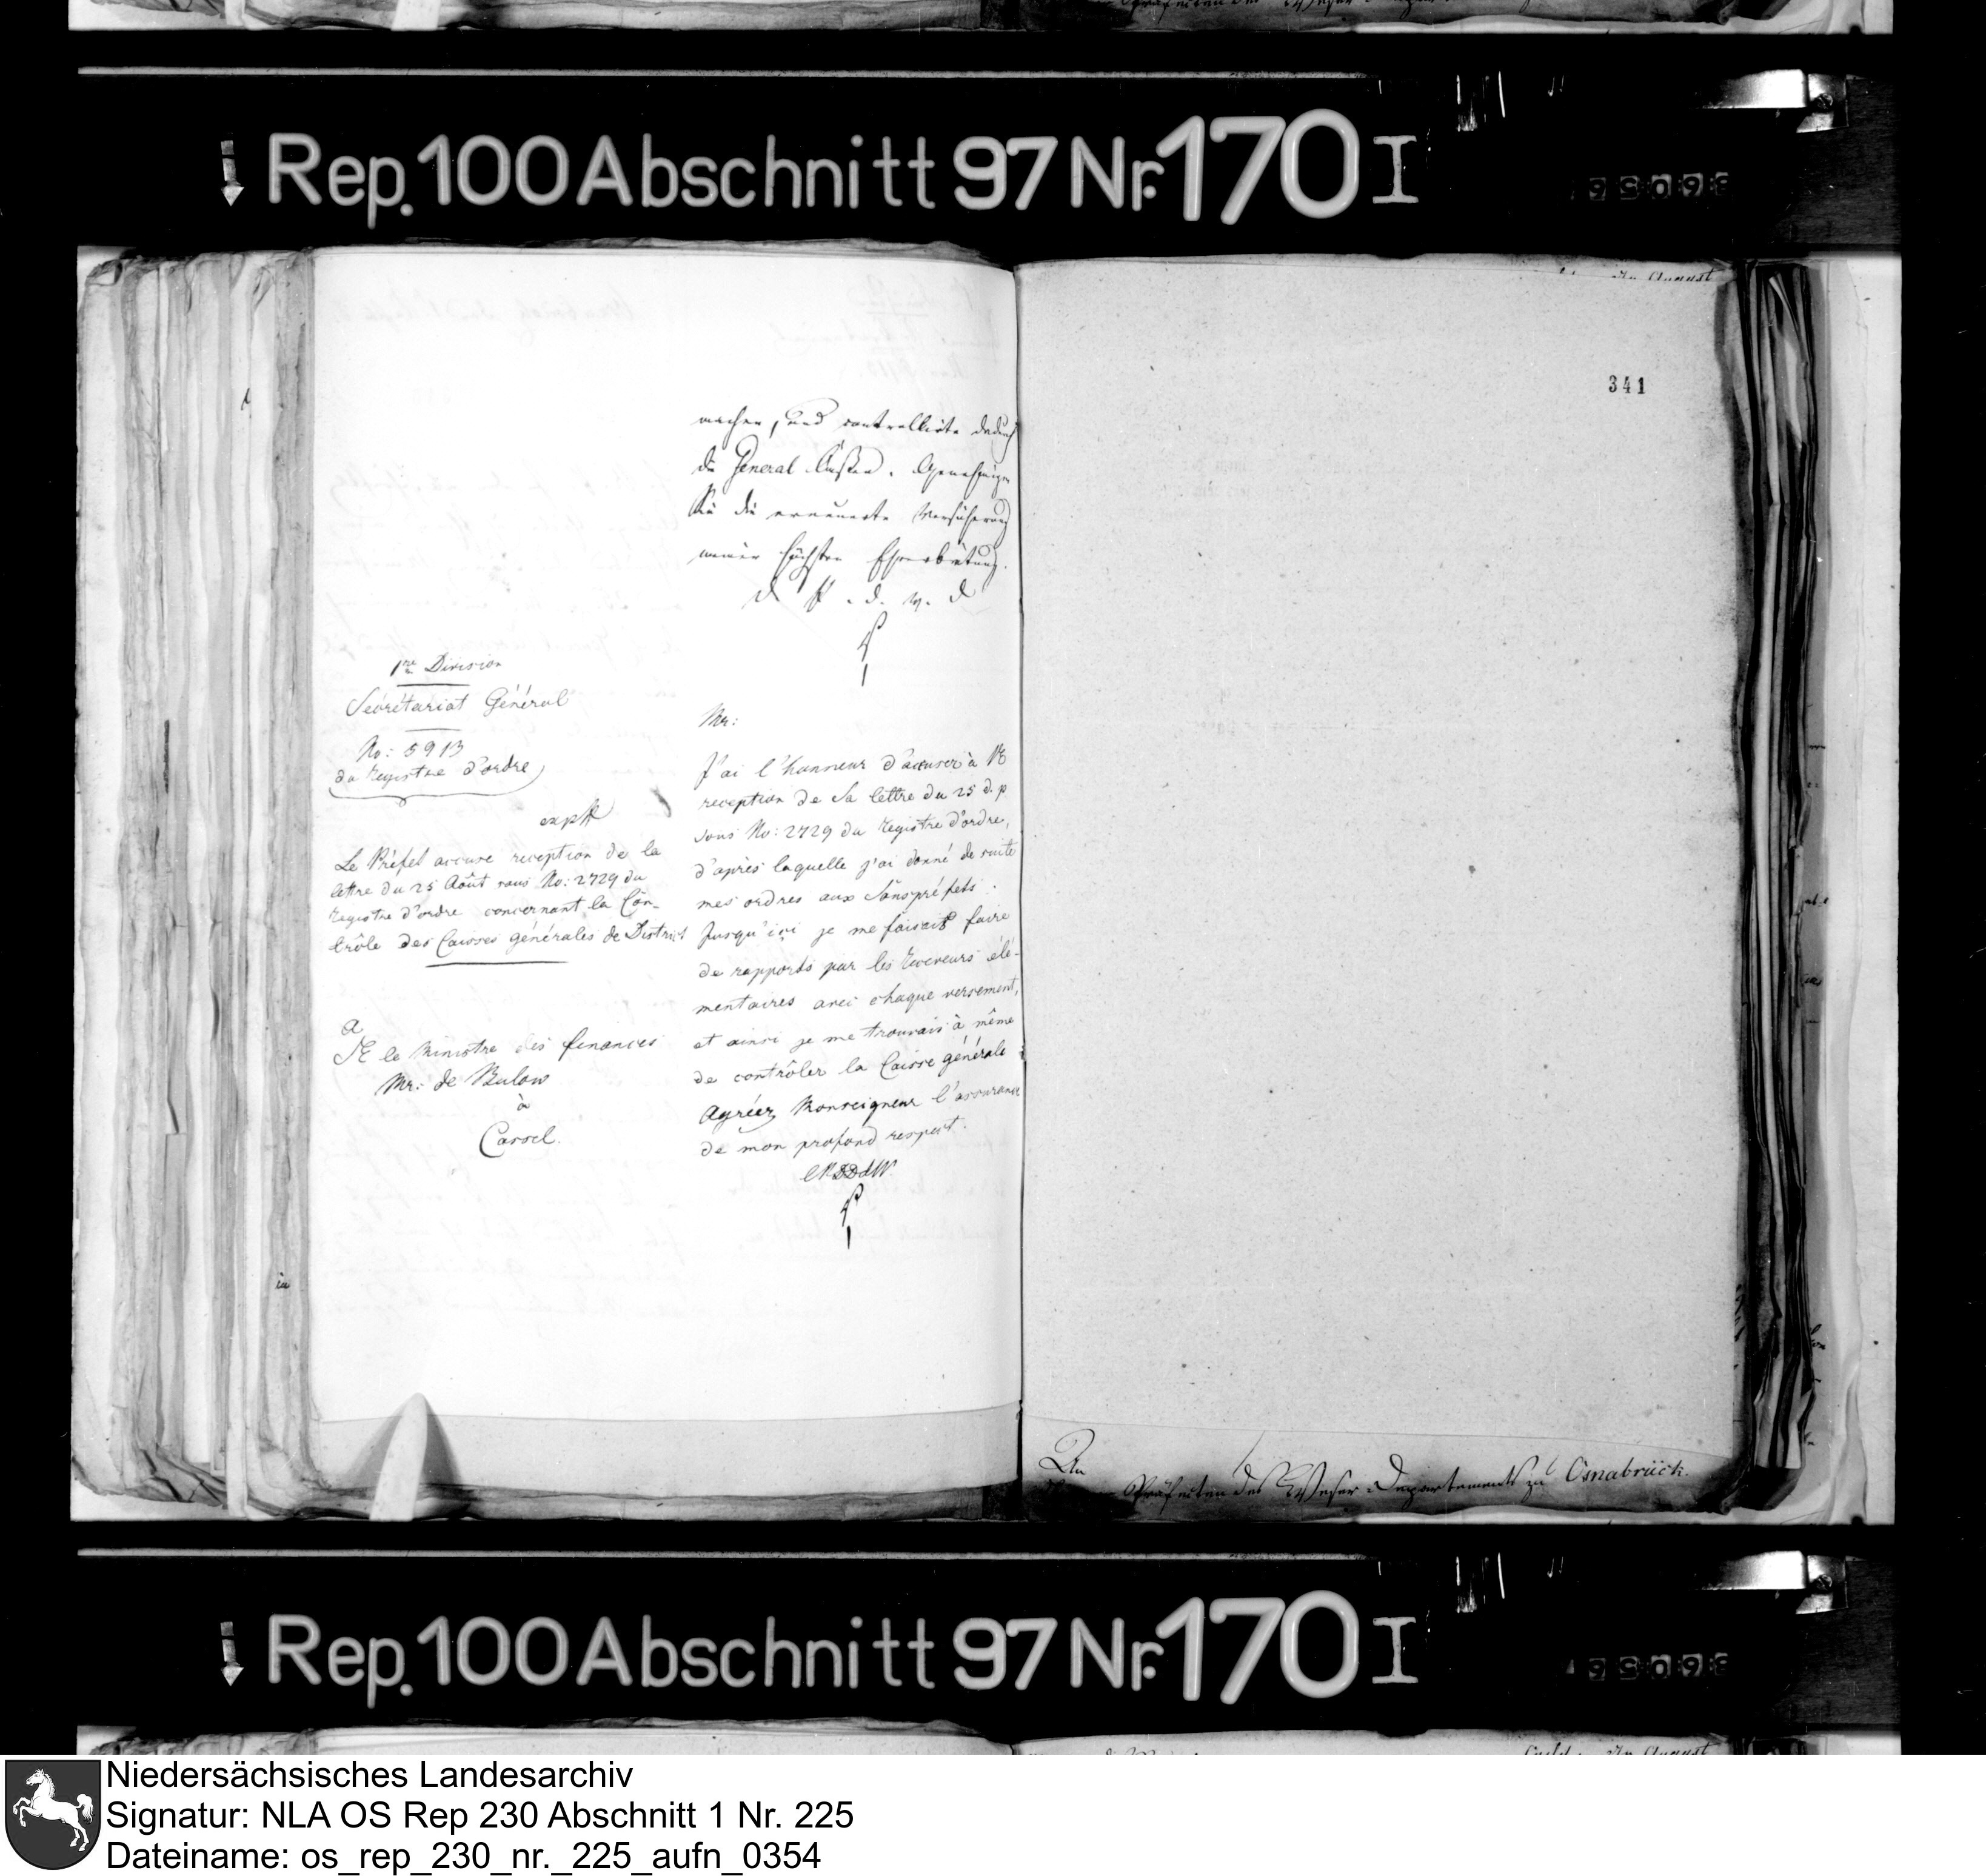 Rep. 100 Abschnitt 97 Nr. 170 I
machen, und controllirte dadurch
die General Cassen. Genehmigen
Sie die erneuerte Versicherung
meiner höchsten Ehrerbietung.
d P. d. W. d
1re Division
Secrétariat Général
No: 5913
du Registre d'ordre
Le Préfet accuse reception de la
lettre du 25 Août sous No: 2729 du
Registre d'ordre concernant la Con-
trôle des Caisses générales de District
a
SE le Ministre des finances
Mr: de Bulow
à
Cassel.
Mr:
J'ai l'honneur d'accuser à VE
reception de Sa lettre du 25 d. p
sous No: 2729 du Registre d'ordre,
d'après laquelle j'ai donné de suite
mes ordres aux Souspréfets.
Jusqu'ici je me faisait faire
de rapports par les Receveurs élé-
mentaires avec chaque versement,
et ainsi je me trouvais à même
de contrôler la Caisse générale
Agréez Monseigneur l'assurance
de mon profond respect.
341
An
Präfecten des Weser-Departements zu Osnabrück.
Rep. 100 Abschnitt 97 Nr. 170 I
August
Niedersächsisches Landesarchiv
Signatur: NLA OS Rep 230 Abschnitt 1 Nr. 225
Dateiname: os_rep_230_nr._225_aufn_0354